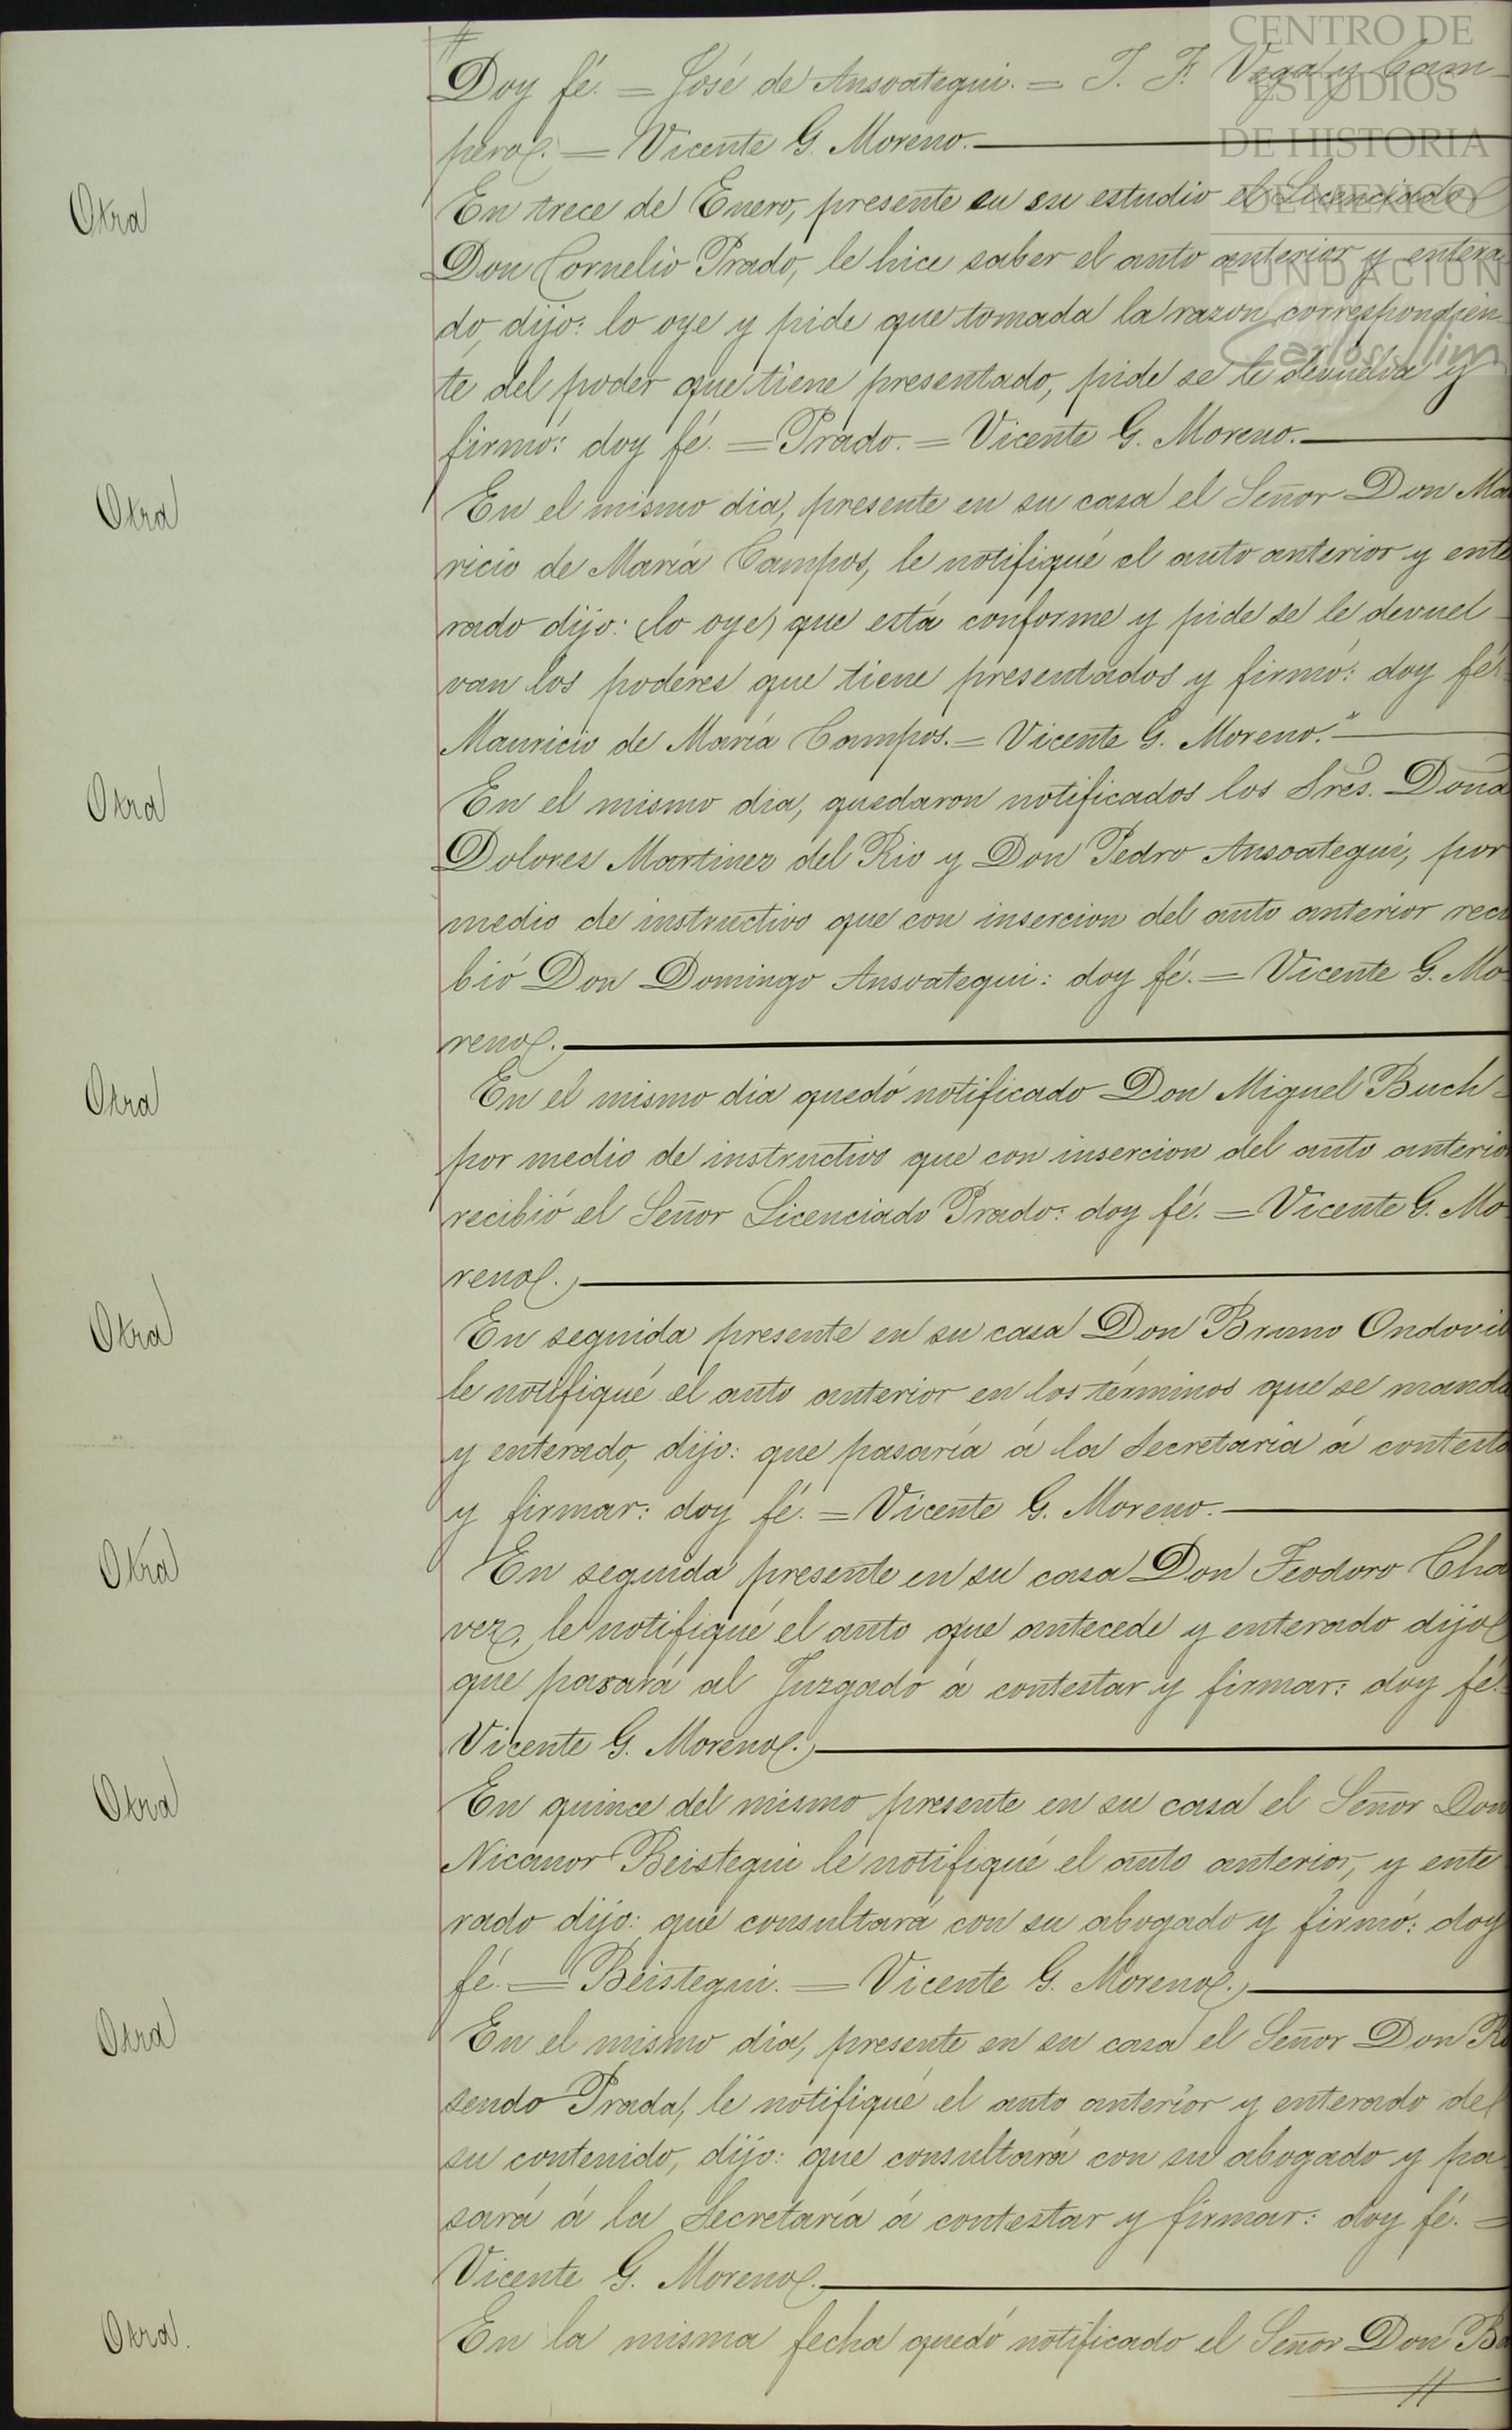 CENTRO DE
ESTUDIOS
DE HISTORIA
DE MEXICO
FUNDACION
Carlos Slim
Doy fé. = José de Ansoategui. = J. F. Vega y Cam-
pero. = Vicente G. Moreno.
Otra
En trece de Enero, presente en su estudio el Licenciado
Don Cornelio Prado, le hice saber el auto anterior y entera-
do, dijo: lo oye y pide que tomada la razon correspondien-
te del poder que tiene presentado, pide se le devuelva y
firmó: doy fé. = Prado. = Vicente G. Moreno.
Otra
En el mismo dia, presente en su casa el Señor Don Ma
ricio de María Campos, le notifiqué el auto anterior y ente
rado dijo: (lo oye) que está conforme y pide se le devuel-
van los poderes que tiene presentados y firmó: doy fé.=
Mauricio de María Campos. = Vicente G. Moreno."
Otra
En el mismo dia, quedaron notificados los Sres. Doña
Dolores Martinez del Rio y Don Pedro Ansoategui, por
medio de instructivo que con insercion del auto anterior reci
bió Don Domingo Ansoategui: doy fé. = Vicente G. Mo-
reno.
Otra
En el mismo dia quedó notificado Don Miguel Buch-
por medio de instructivo que con insercion del auto anterior
recibió el Señor Licenciado Prado: doy fé. = Vicente G. Mo-
reno.
Otra
En seguida presente en su casa Don Bruno Ondovil
le notifiqué el auto anterior en los términos que se manda
y enterado, dijo: que pasaría á la Secretaria á contesta
y firmar: doy fé. = Vicente G. Moreno.
Otra
En seguida presente en su casa Don Teodoro Cha
vez, le notifiqué el auto que antecede y enterado dijo
que pasará al Juzgado á contestar y firmar: doy fé.=
Vicente G. Moreno.
Otra
En quince del mismo presente en su casa el Señor Don
Nicanor Beistegui le notifiqué el auto anterior, y ente
rado dijo: que consultará con su abogado y firmó: doy
fé. = Beistegui. = Vicente G. Moreno.
Otra
En el mismo dia, presente en su casa el Señor Don Ro
sendo Prada, le notifiqué el auto anterior y enterado de
su contenido, dijo: que consultará con su abogado y pa
sará á la Secretaría á contestar y firmar: doy fé. =
Vicente G. Moreno.
Otra.
En la misma fecha quedó notificado el Señor Don Ba